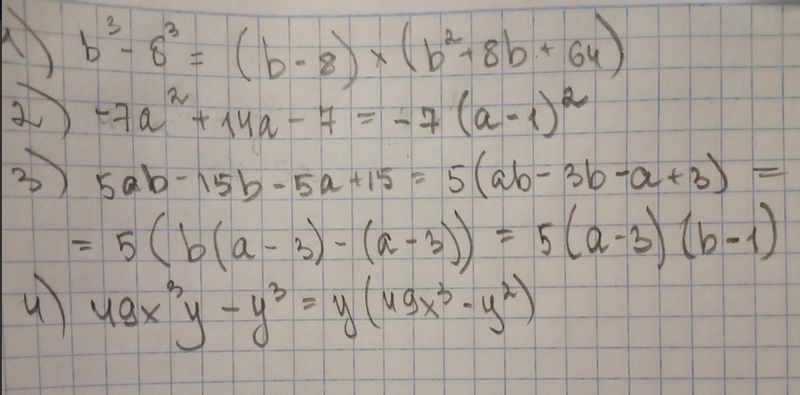 1) b³ - 8³ = (b - 8) × (b² + 8b + 64)
2) -7a² + 14a - 7 = -7 (a - 1)²
3) 5ab - 15b - 5a + 15 = 5(ab - 3b - a + 3) =
= 5(b(a - 3) - (a - 3)) = 5(a - 3)(b - 1)
4) 49x³y - y³ = y(49x³ - y²)